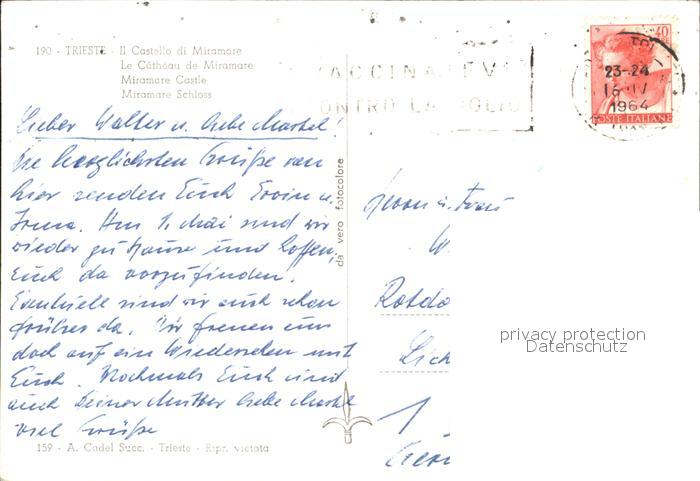 190 - TRIESTE - Il Castello di Miramare
Le Câthéau de Miramare
Miramare Castle
Miramare Schloss
VACCINATEVI
CONTRO LA POLIO
40
23-24
16 IV
1964
POSTE ITALIANE
Lieber Walter u. liebe Martel!
Die herzlichsten Grüße von
hier senden Euch Erwin u.
Irma. Am 1. Mai sind wir
wieder zu Hause und hoffen,
Euch da vorzufinden.
Eventuell sind wir auch schon
früher da. Wir freuen uns
doch auf ein Wiedersehen mit
Euch. Nochmals Euch und
auch Deiner Mutter liebe Martel
viel Grüße
da vero fotocolore
Herrn u. Frau
W
Rotdo
Lich
privacy protection
Datenschutz
159 - A. Cadel Succ. - Trieste - Ripr. vietata